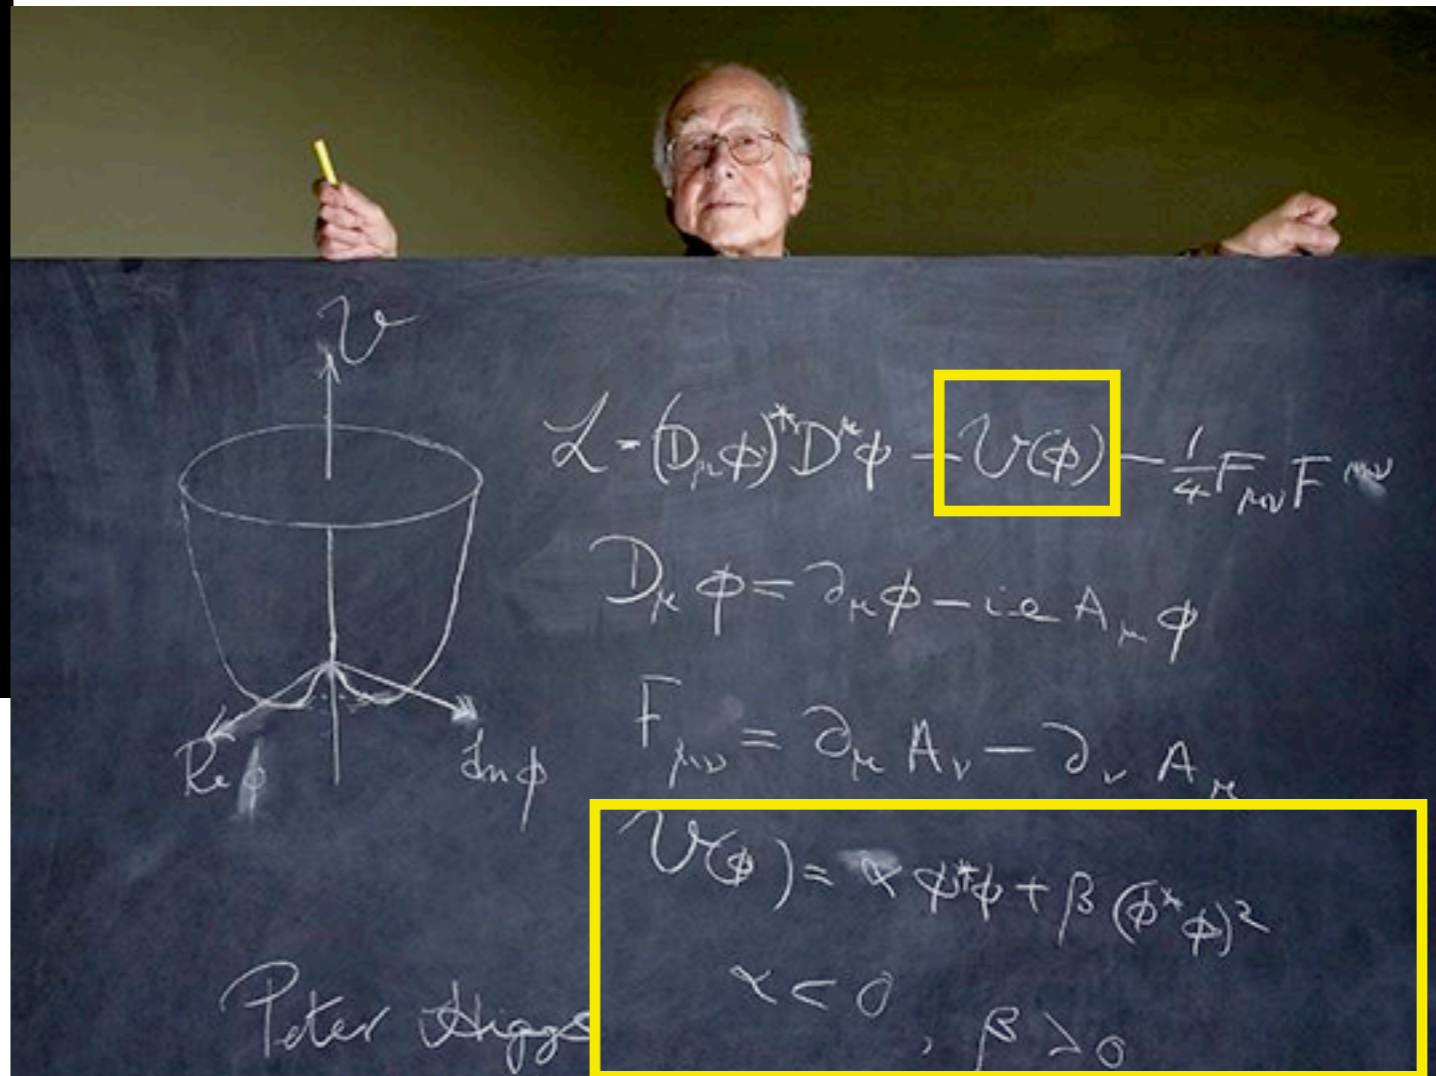 V
ℒ = (D_μ ϕ)^* D^μ ϕ − V(ϕ) − ¼ F_μν F^μν
D_μ ϕ = ∂_μ ϕ − i e A_μ ϕ
F_μν = ∂_μ A_ν − ∂_ν A_μ
Re ϕ
Im ϕ
V(ϕ) = α ϕ^*ϕ + β (ϕ^*ϕ)^2
α < 0, β > 0
Peter Higgs